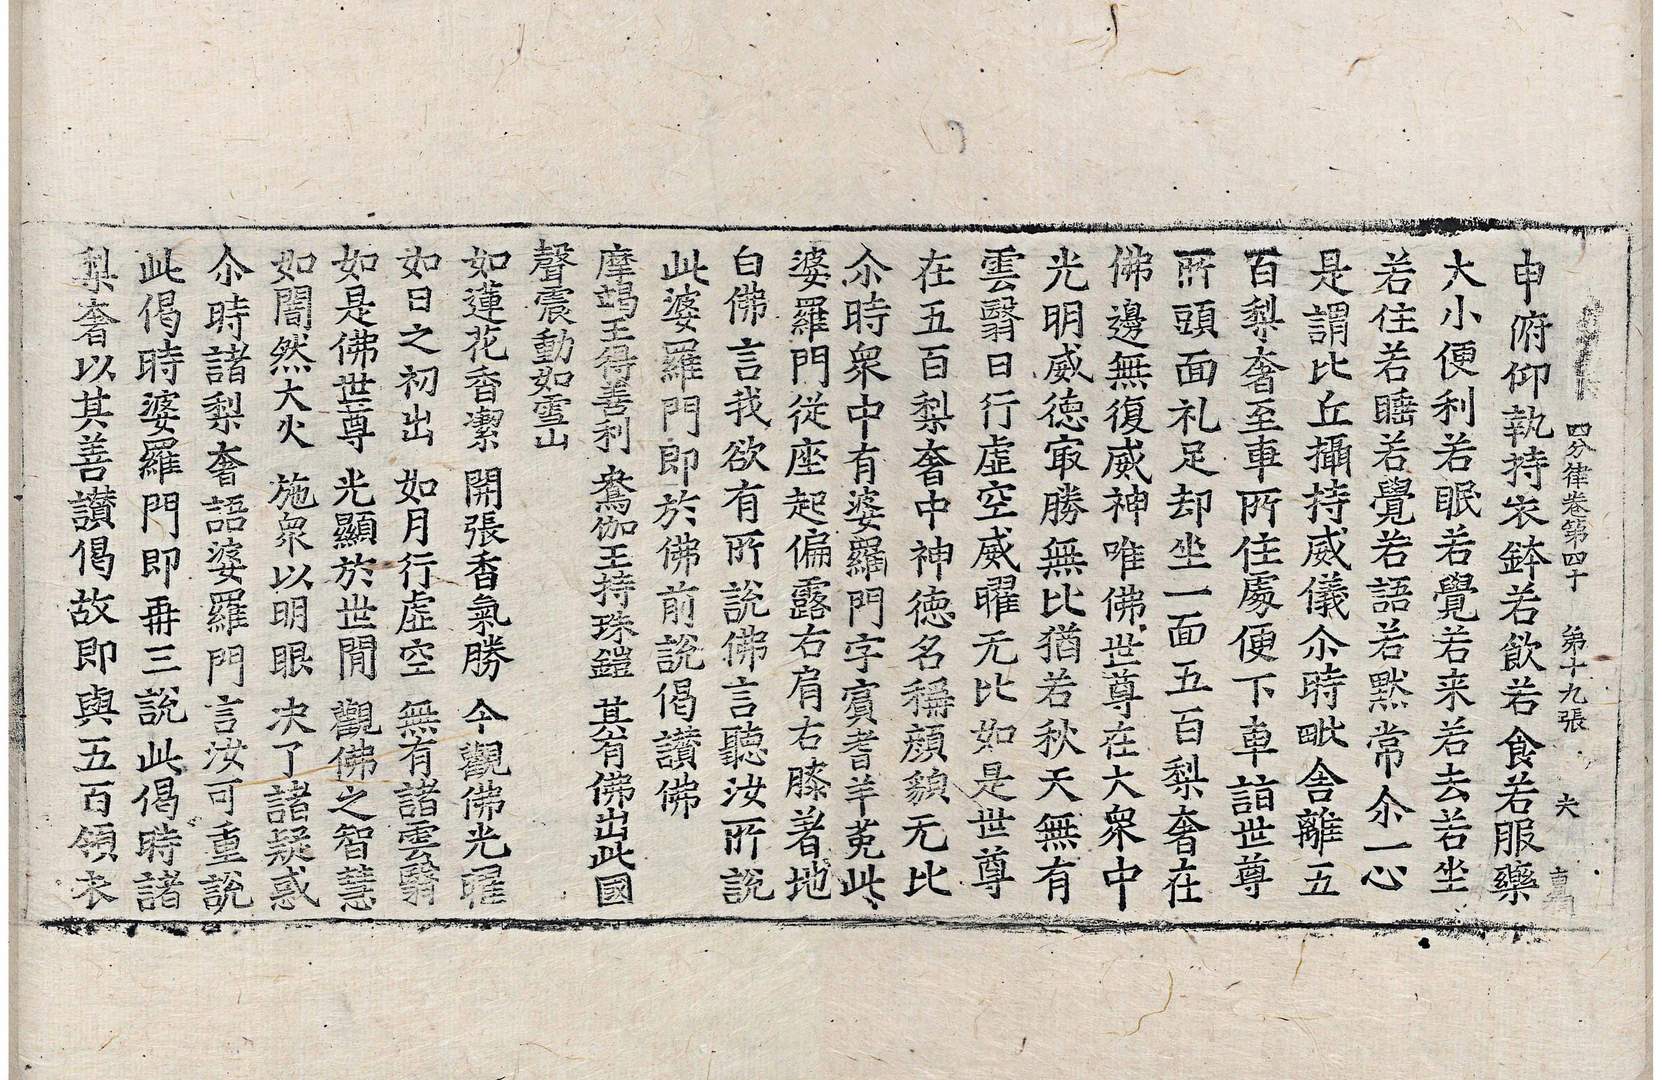 四分律卷第四十 第十九張 夫
申俯仰執持衣鉢若飲若食若服藥
大小便利若眠若覺若来若去若坐
若住若睡若覺若語若默常尒一心
是謂比丘攝持威儀尒時毗舍離五
百梨奢至車所住處便下車詣世尊
所頭面礼足却坐一面五百梨奢在
佛邊無復威神唯佛世尊在大眾中
光明威德㝡勝無比猶若秋天無有
雲翳日行虛空威曜无比如是世尊
在五百梨奢中神德名稱顔貌无比
尒時眾中有婆羅門字賓耆羊㝹此
婆羅門從座起偏露右肩右膝著地
白佛言我欲有所說佛言聽汝所說
此婆羅門即於佛前說偈讃佛
摩竭王得善利 鴦伽王持珠鎧 其有佛出此國
聲震動如雪山
如蓮花香潔 開張香氣勝 今觀佛光曜
如日之初出 如月行虛空 無有諸雲翳
如是佛世尊 光顯於世閒 觀佛之智慧
如闇然大火 施眾以明眼 决了諸疑惑
尒時諸梨奢語婆羅門言汝可重說
此偈時婆羅門即再三說此偈時諸
梨奢以其善讃偈故即與五百領衣